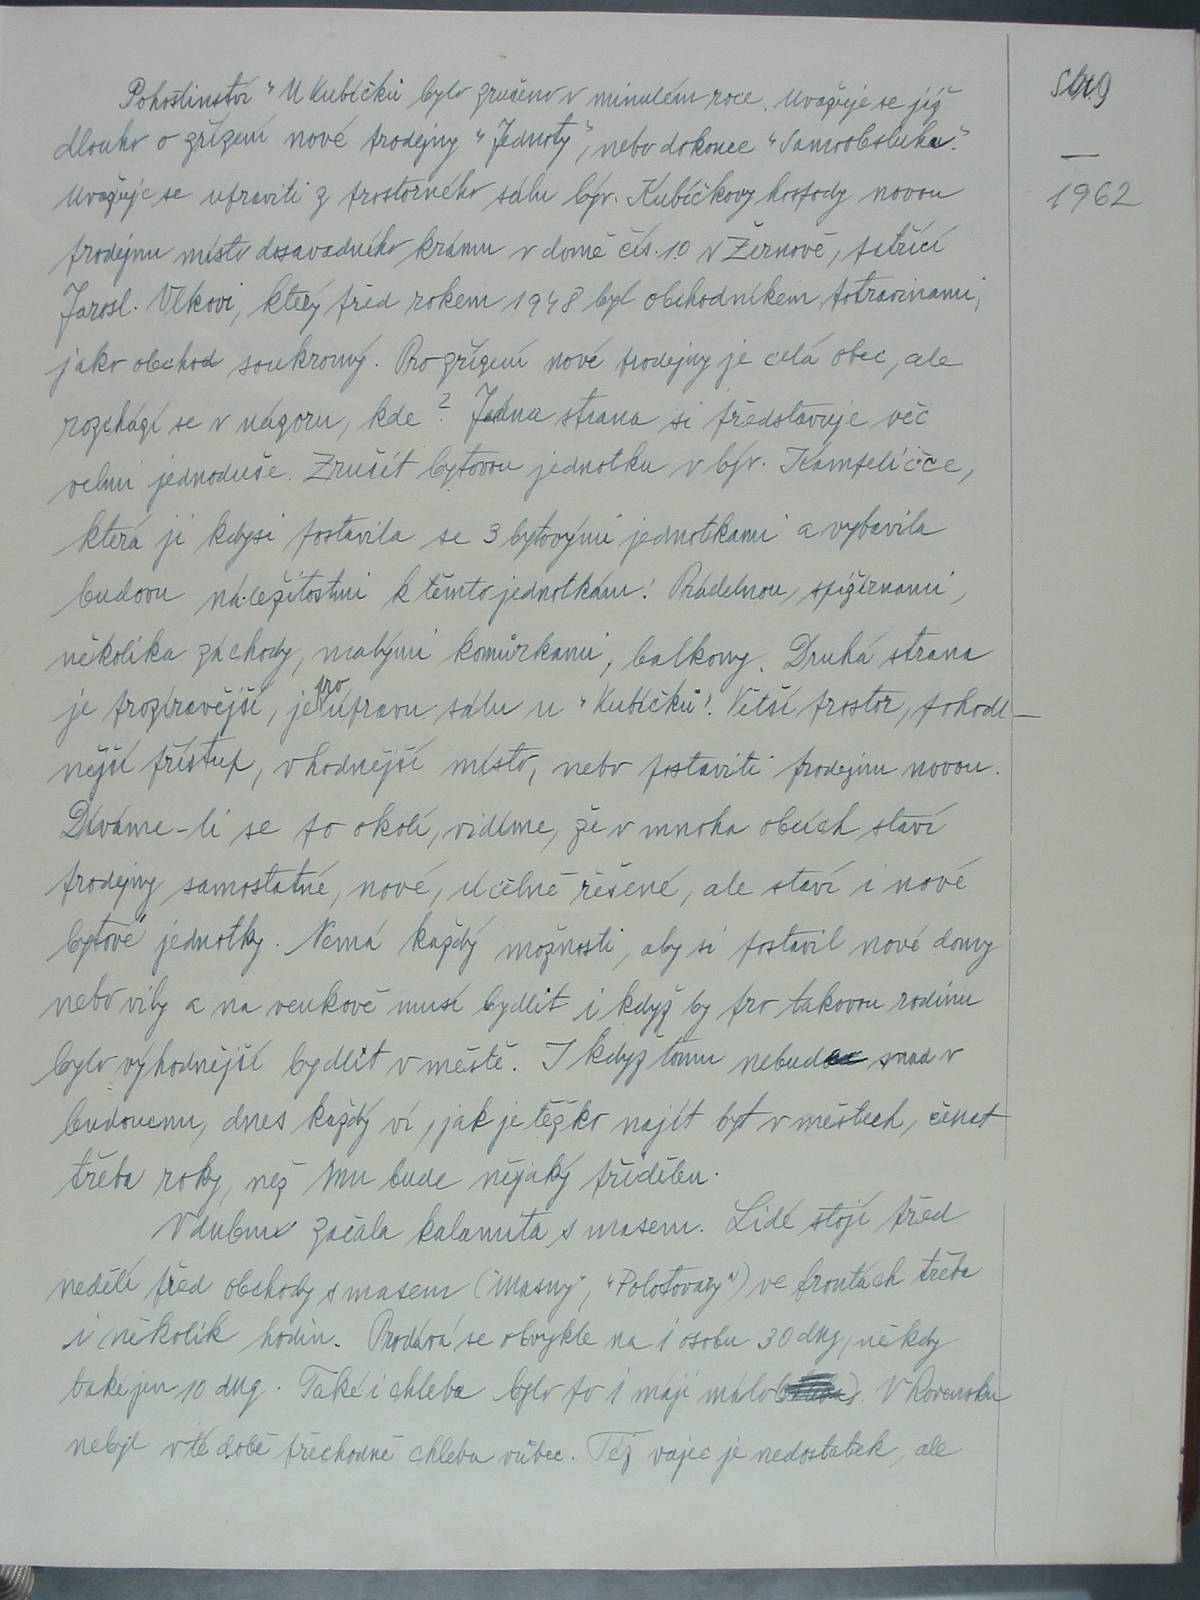 Str. 9
—
1962
Pohostinství "U Kubíčků bylo zrušeno v minulém roce. Uvažuje se již
dlouho o zřízení nové prodejny "Jednoty", nebo dokonce "Samoobsluha".
Uvažuje se upraviti z prostorného sálu býv. Kubíčkovy hospody novou
prodejnu místo dosavadního krámu v domě čís. 10 v Žernově, patřící
Jarosl. Vlkovi, který před rokem 1948 byl obchodníkem potravinami,
jako obchod soukromý. Pro zřízení nové prodejny je celá obec, ale
rozchází se v názoru, kde? Jedna strana si představuje věc
velmi jednoduše. Zrušit bytovou jednotku v býv. Kampeličce,
která ji kdysi postavila se 3 bytovými jednotkami a vybavila
budovu náležitostmi k těmto jednotkám: Prádelnou, spižírnami,
několika záchody, malými komůrkami, balkony. Druhá strana
je prozíravější, je pro úpravu sálu u "Kubíčků". Větší prostor, pohodl-
nější přístup, vhodnější místo, nebo postaviti prodejnu novou.
Díváme-li se po okolí, vidíme, že v mnoha obcích staví
prodejny samostatné, nové, účelně řešené, ale staví i nové
bytové jednotky. Nemá každý možnosti, aby si postavil nové domy
nebo vily a na venkově musí bydlit i když by pro takovou rodinu
bylo výhodnější bydlit v městě. I když tomu nebude snad v
budoucnu, dnes každý ví, jak je těžko najít byt v městech, čekat
třeba roky, než mu bude nějaký přidělen.
V dubnu začala kalamita s masem. Lidé stojí před
nedělí před obchody s masem ("Masny", "Polotovary") ve frontách třeba
i několik hodin. Prodává se obvykle na 1 osobu 30 dkg, někdy
také jen 10 dkg. Také i chleba bylo po 1 máji málo. V Rovensku
nebyl v té době přechodně chleba vůbec. Též vajec je nedostatek, ale